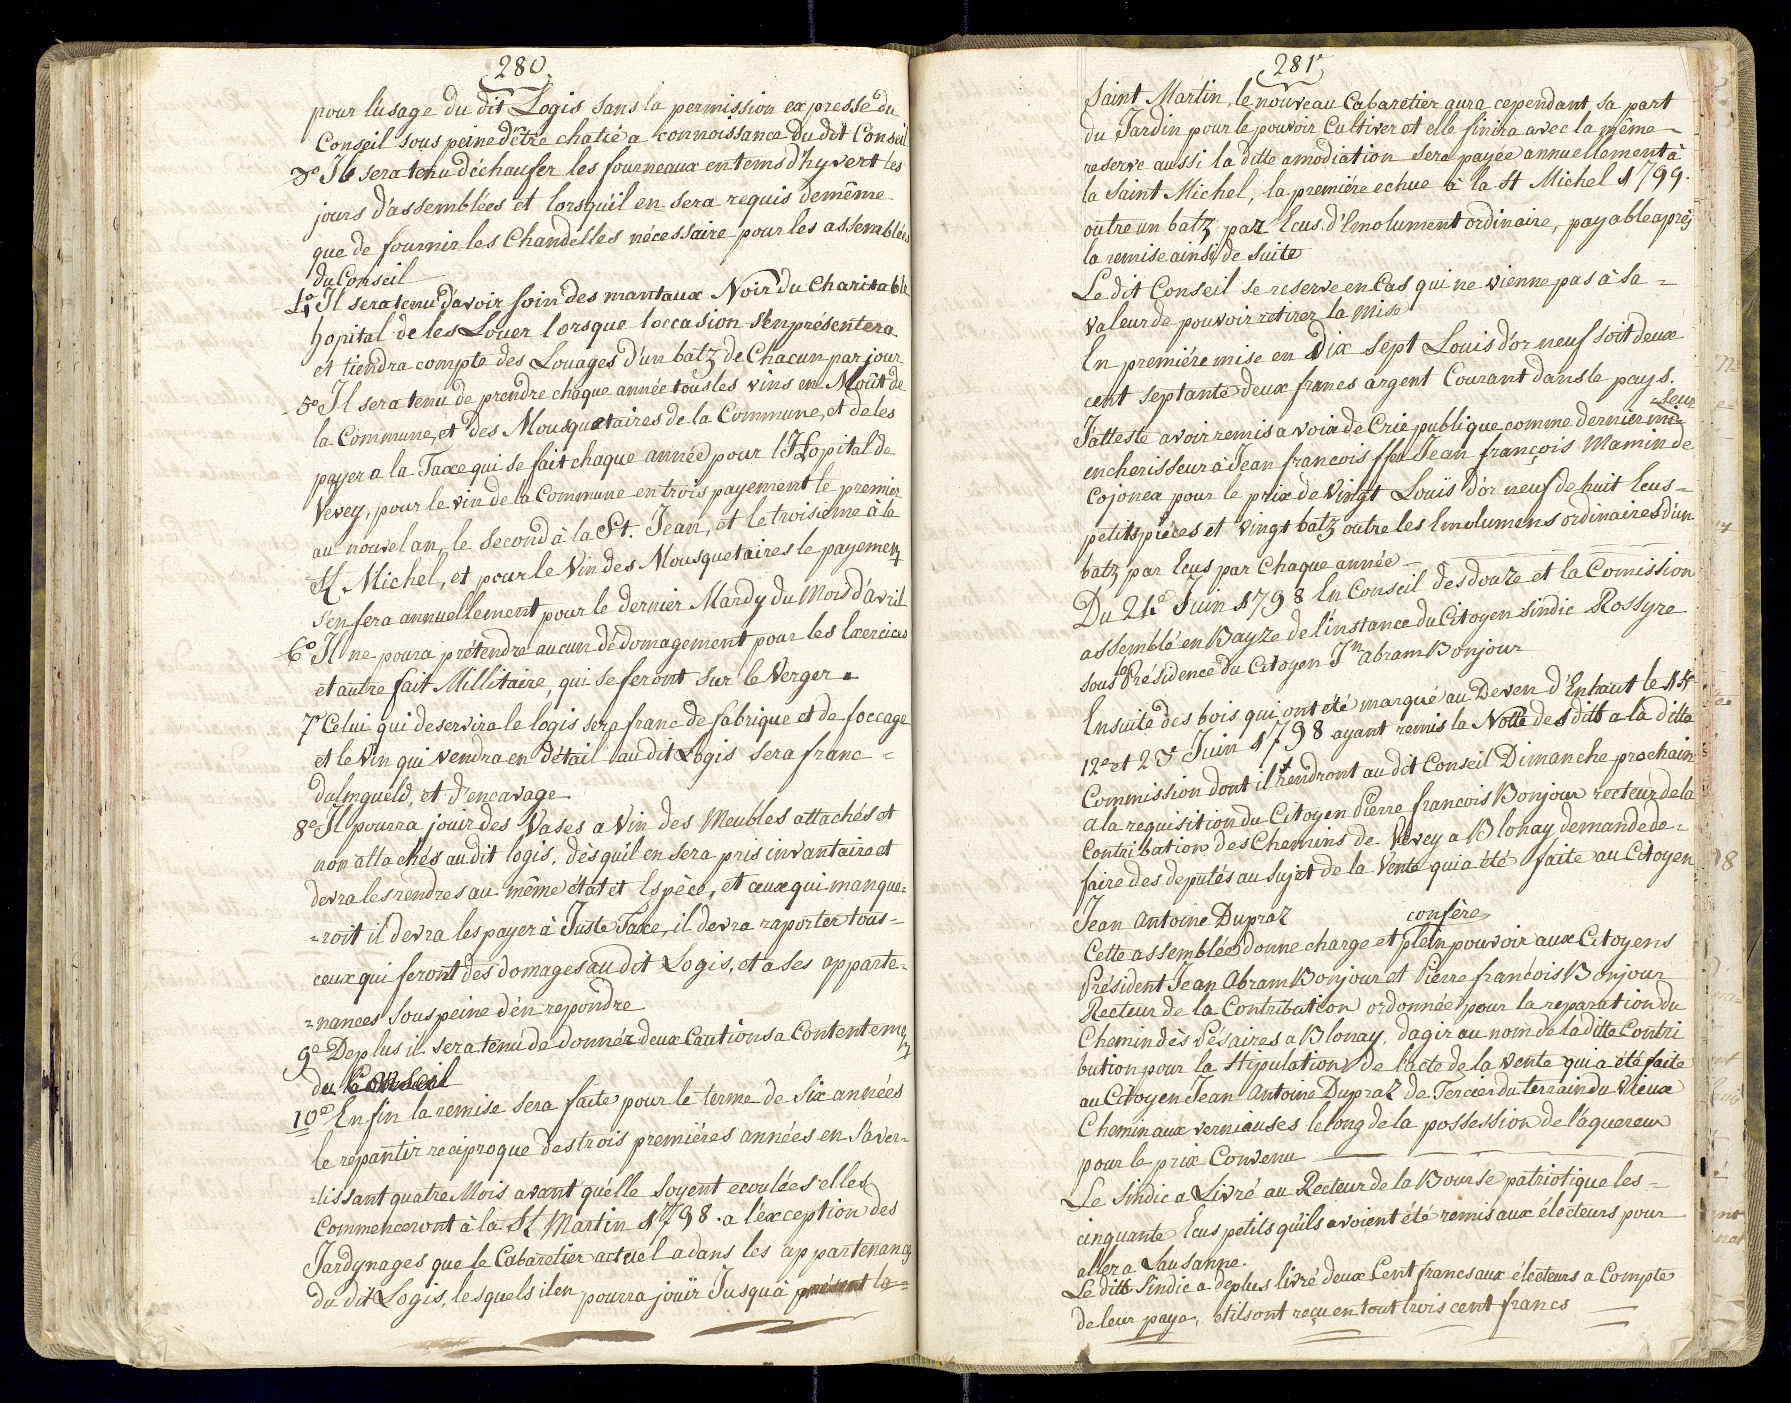 280
pour l'usage du dit Logis sans la permission expresse du
Conseil sous peine d'être chatié a connoissance du dit Conseil
3º Il sera tenu d'échaufer les fourneaux en tems d'hyvert les
jours d'assemblées et lorsqu'il en sera requis de même
que de fournir les Chandelles nécessaire pour les assemblées
du Conseil
4º Il sera tenu d'avoir soin des mantaux Noir du Charitable
hopital de les Louer lorsque l'occasion s'en présentera
et tiendra compte des Louages d'un batz de Chacun par jour
5º Il sera tenu de prendre chaque année tous les vins en Moût de
la Commune, et des Mousquetaires de la Commune, et de les
payer a la Taxe qui se fait chaque année pour l'Hopital de
Vevey, pour le vin de la Commune en trois payement le premier
au nouvel an, le second à la St. Jean, et le troisieme à la
St Michel, et pour le Vin des Mousquetaires le payement
s'en fera annuellement pour le dernier Mardy du Mois d'avril
6º Il ne poura prétendre aucun dédomagement pour les Exercices
et autre fait Millitaire, qui se feront sur le Verger
7º Celui qui deservira le logis sera franc de fabrique et de foccage
et le Vin qui vendra en détail au dit Logis sera franc =
d'ulmgueld, et d'encavage
8º Il pourra jouir des Vases a Vin des Meubles attachés et
non attachés au dit logis, dès qu'il en sera pris invantaire et
devra les rendres au même état et Espèce, et ceux qui manque=
=roit il devra les payer à Juste Taxe, il devra raporter tous=
ceux qui feront des domages au dit Logis, et a ses apparte=
=nances sous peine d'en repondre
9º De plus il sera tenu de donner deux Cautions a Contentement
du Conseil
10º Enfin la remise sera faite pour le terme de Six années
le repantir reciproque des trois premiéres années en s'aver=
=tissant quatre Mois avant qu'elle soyent ecoulées elles
Commenceront à la St Martin 1798. a l'exception des
Jardynages que le Cabaretier actuel a dans les appartenances
du dit Logis, lesquels il en pourra jouïr Jusqu'à présent la=
281
Saint Martin, le nouveau Cabaretier aura cependant sa part
du Jardin pour le pouvoir Cultiver et elle finira avec la même=
reserve aussi la ditte amodiation sera payée annuellement à
la Saint Michel, la premiére echue à la St Michel 1799.
outre un batz par Ecus d'Emolument ordinaire, payable après
la remise ainsi de suite
Le dit Conseil se reserve en Cas qui ne vienne pas à sa =
valeur de pouvoir retirer la Mise
En premiére mise en Dix sept Louis d'or neuf soit deux
cent septante deux francs argent Courant dans le pays.
J'atteste avoir remis a voix de Crie publique comme dernier mi=
=seur
encherisseur à Jean francois ffeu Jean françois Mamin de
Cojonex pour le prix de Vingt Louïs d'or neuf de huit Ecus=
petits piéces et vingt batz outre les Emolumens ordinaires d'un
batz par Ecus par Chaque année
Du 21º Juin 1798 En Conseil des douze et la Comission
assemblé en Bayze de l'instance du Citoyen sindic Rossyre
sous la Présidence du Citoyen Jn Abram Bonjour
Ensuite des bois qui ont été marqué au Deven d'Enhaut le 1er
12e et 23 Juin 1798 ayant remis la Notte des ditt a la ditte
Commission dont il rendront au dit Conseil Dimanche prochain
a la requisition du Citoyen Pierre francois Bonjour recteur de la
Contribution des Chemins de Vevey a Blonay demande de=
faire des deputés au sujet de la Vente qui a été faite au Citoyen
Jean Antoine Dupraz
confère
Cette assemblée donne charge et plein pouvoir aux Citoyens
Président Jean Abram Bonjour et Pierre francois Bonjour
Recteur de la Contribution ordonnée pour la reparation du
Chemin dès Pésaires a Blonay, d'agir au nom de la ditte Contri
bution pour la Stipulation de l'acte de la vente qui a été faite
au Citoyen Jean Antoine Dupraz de Tercier du terrain du Vieux
Chemin aux verniauses le long de la possession de l'aquereur
pour le prix Convenu
Le sindic a Livré au Recteur de la Bourse patriotique les =
cinquante Ecus petits qu'ils avoient été remis aux électeurs pour
aller a Lausanne.
Le ditt sindic a de plus livré deux Cent francs aux électeurs a Compte
de leur paye, et il sont reçu en tout trois cent francs